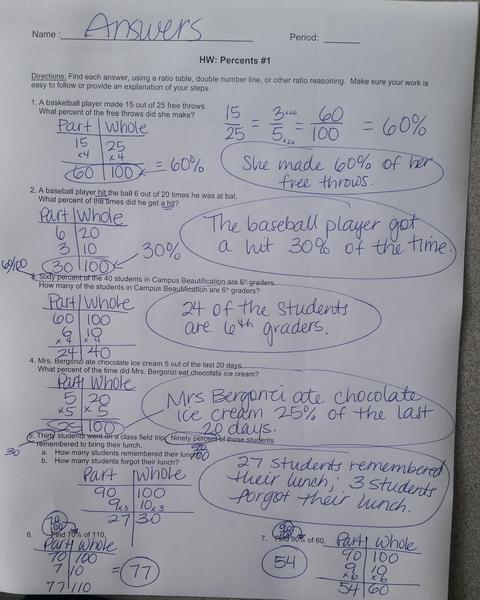 Name : Answers Period: ______
HW: Percents #1
Directions: Find each answer, using a ratio table, double number line, or other ratio reasoning. Make sure your work is
easy to follow or provide an explanation of your steps.
1. A basketball player made 15 out of 25 free throws.
What percent of the free throws did she make?
15/25 = 3 x20/5 x20 = 60/100 = 60%
Part | Whole
15 | 25
x4 | x4
60 | 100 = 60%
She made 60% of her
free throws.
2. A baseball player hit the ball 6 out of 20 times he was at bat.
What percent of the times did he get a hit?
Part | Whole
6 | 20
3 | 10
30 | 100
30%
The baseball player got
a hit 30% of the time.
60/100
3. Sixty percent of the 40 students in Campus Beautification are 6th graders.
How many of the students in Campus Beautification are 6th graders?
Part | Whole
60 | 100
6 | 10
x4 | x4
24 | 40
24 of the students
are 6th graders.
4. Mrs. Bergonzi ate chocolate ice cream 5 out of the last 20 days.
What percent of the time did Mrs. Bergonzi eat chocolate ice cream?
Part | Whole
5 | 20
x5 | x5
25 | 100
Mrs Bergonzi ate chocolate
ice cream 25% of the last
20 days.
5. Thirty students went on a class field trip. Ninety percent of those students
remembered to bring their lunch.
30
90/100
a. How many students remembered their lunch?
b. How many students forgot their lunch?
Part | Whole
90 | 100
9 x3 | 10 x3
27 | 30
27 students remembered
their lunch; 3 students
forgot their lunch.
6. Find 70% of 110.
70/100
Part | Whole
70 | 100
7 | 10
77 | 110
= 77
7. Find 90% of 60.
90/100
54
Part | Whole
90 | 100
9 | 10
x6 | x6
54 | 60